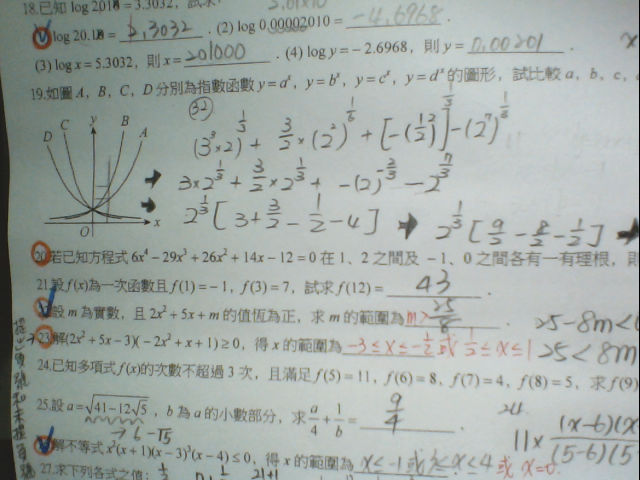 18.已知 log 2018 = 3.3032，試求
log 20.18 = 1.3032 . (2) log 0.00002010 = -4.6968 .
(3) log x = 5.3032，則 x = 201000 . (4) log y = -2.6968，則 y = 0.00201 .
19.如圖 A，B，C，D 分別為指數函數 y = aˣ，y = bˣ，y = cˣ，y = dˣ 的圖形，試比較 a，b，c，
D C y B A
x
O
(3³×2)^(1/3) + 3/2×(2²)^(1/6) + [-(1/2)]^(1/3) - (2⁷)^(1/3)
3×2^(1/3) + 3/2×2^(1/3) + -(2)^(-2/3) - 2^(7/3)
2^(1/3) [3 + 3/2 - 1/2 - 4] → 2^(1/3) [9/2 - 8/2 - 1/2] →
20.若已知方程式 6x⁴ − 29x³ + 26x² + 14x − 12 = 0 在 1、2 之間及 −1、0 之間各有一有理根，則
21.設 f(x) 為一次函數且 f(1) = −1，f(3) = 7，試求 f(12) = 43 .
設 m 為實數，且 2x² + 5x + m 的值恆為正，求 m 的範圍為 m > 25/8 . 25-8m<0
23.解(2x² + 5x − 3)(−2x² + x + 1) ≥ 0，得 x 的範圍為 -3≤x≤-1/2 或 1/2≤x≤1 25<8m
24.已知多項式 f(x) 的次數不超過 3 次，且滿足 f(5) = 11，f(6) = 8，f(7) = 4，f(8) = 5，求 f(9)
25.設 a = √(41 − 12√5)，b 為 a 的小數部分，求 a/4 + 1/b = 9/4 .
→ 6-√5
24.
11× (x-6)(x
(5-6)(5
解不等式 x²(x + 1)(x − 3)³(x − 4) ≤ 0，得 x 的範圍為 x≤-1 或 3≤x≤4 或 x=0.
27.求下列各式之值：